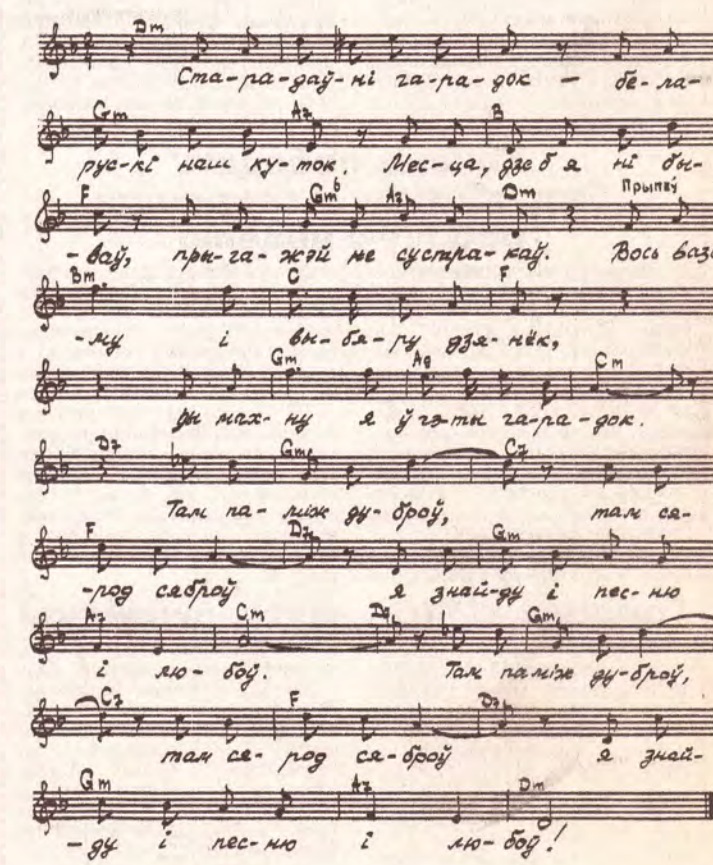 Dm
Ста-ра-даў-ні га-ра-док — бе-ла-
Gm A7 B
рус-кі наш ку-ток. Мес-ца, дзе б я ні бы-
F Gm6 A7 Dm Прыпеў
-ваў, пры-га-жэй не сустра-каў. Вось вазь
Bm C F
-му і вы-бя-ру дзя-нёк,
Gm A9 Cm
ды мах-ну я ў гэ-ты га-ра-док.
D7 Gm6 C7
Там па-між ду-броў, там ся-
F D7 Gm
-род сяброў я знай-ду і пес-ню
A7 Cm D9 Gm6
і лю-боў. Там паміж ду-броў,
C7 F D7
там ся-род ся-броў я знай-
Gm A7 Dm
-ду і пес-ню і лю-боў!